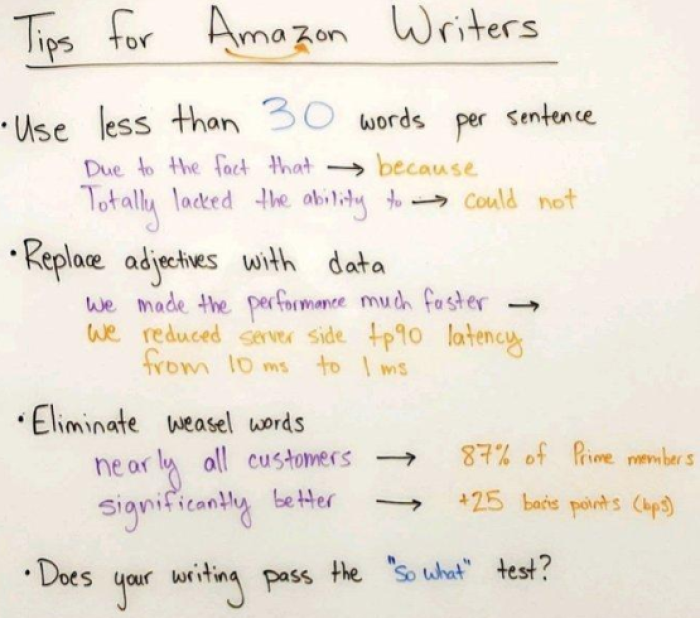 Tips for Amazon Writers
• Use less than 30 words per sentence
Due to the fact that → because
Totally lacked the ability to → could not
• Replace adjectives with data
We made the performance much faster →
We reduced server side tp90 latency
from 10 ms to 1 ms
• Eliminate weasel words
nearly all customers → 87% of Prime members
significantly better → +25 basis points (bps)
• Does your writing pass the "so what" test?